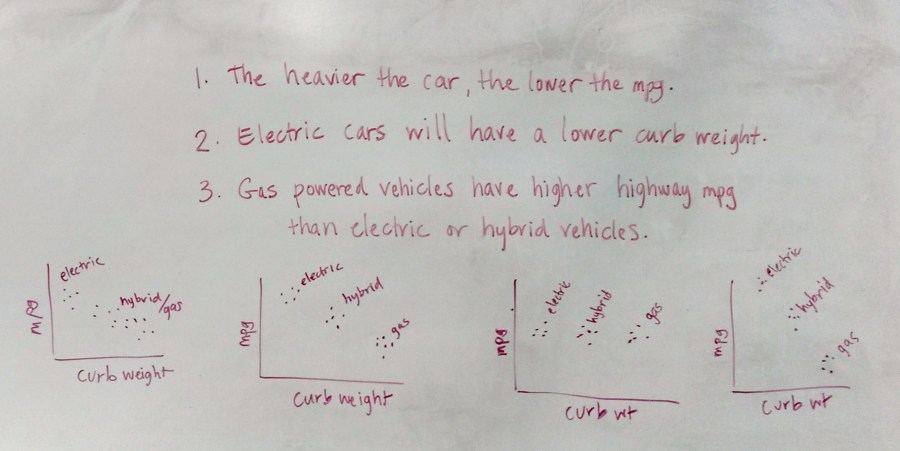 1. The heavier the car, the lower the mpg.
2. Electric cars will have a lower curb weight.
3. Gas powered vehicles have higher highway mpg
than electric or hybrid vehicles.
electric
hybrid/gas
mpg
curb weight
electric
hybrid
gas
mpg
curb weight
electric
hybrid
gas
mpg
curb wt
electric
hybrid
gas
mpg
curb wt